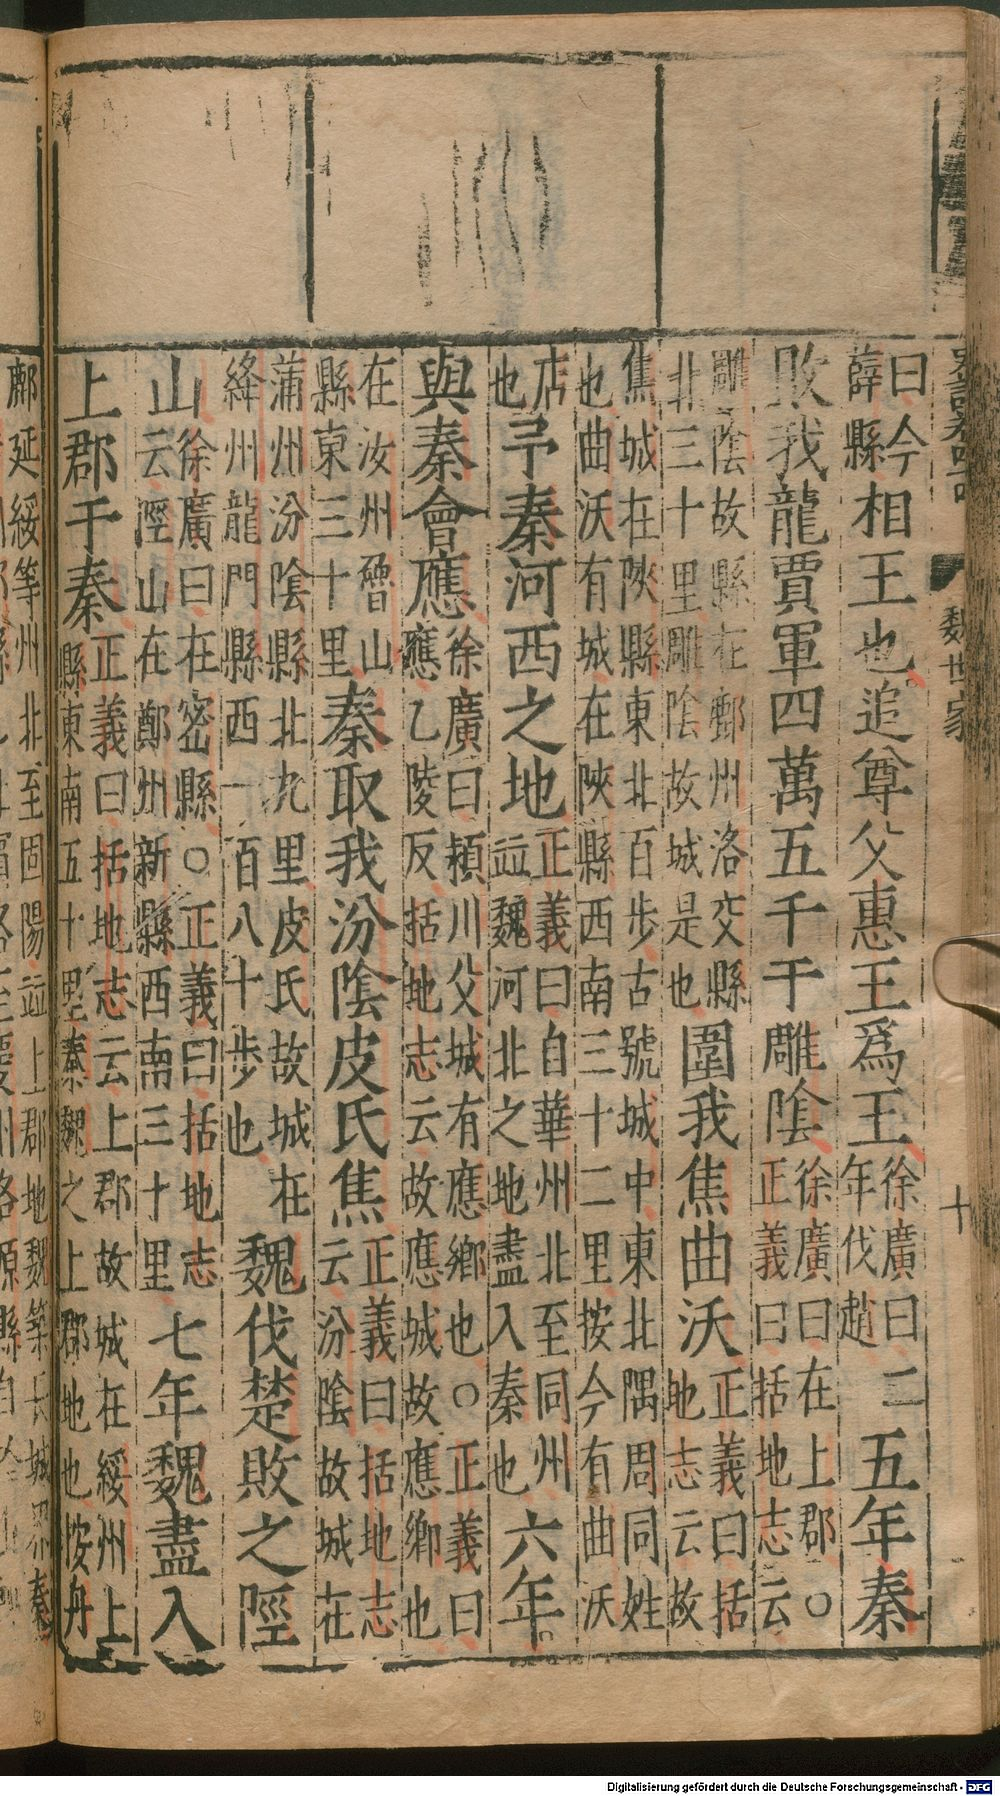 魏世家
十
曰今薛縣相王也追尊父惠王為王徐廣曰二年伐趙五年秦
敗我龍賈軍四萬五千于雕陰徐廣曰在上郡○正義曰括地志云
雕陰故縣在鄜州洛交縣北三十里雕陰故城是也圍我焦曲沃正義曰括地志云故
焦城在陝縣東北百步古虢城中東北隅周同姓也曲沃有城在陝縣西南三十二里按今有曲沃
店也予秦河西之地正義曰自華州北至同州並魏河北之地盡入秦也六年
與秦會應徐廣曰潁川父城有應鄉也○正義曰應乙陵反括地志云故應城故應鄉也
在汝州魯山縣東三十里秦取我汾陰皮氏焦正義曰括地志云汾陰故城在
蒲州汾陰縣北九里皮氏故城在絳州龍門縣西一百八十步也魏伐楚敗之陘
山徐廣曰在密縣○正義曰括地志云陘山在鄭州新縣西南三十里七年魏盡入
上郡于秦正義曰括地志云上郡故城在綏州上縣東南五十里秦魏之上郡地也按丹
鄜延綏等州北至固陽並上郡地魏築長城界秦
Digitalisierung gefördert durch die Deutsche Forschungsgemeinschaft - DFG